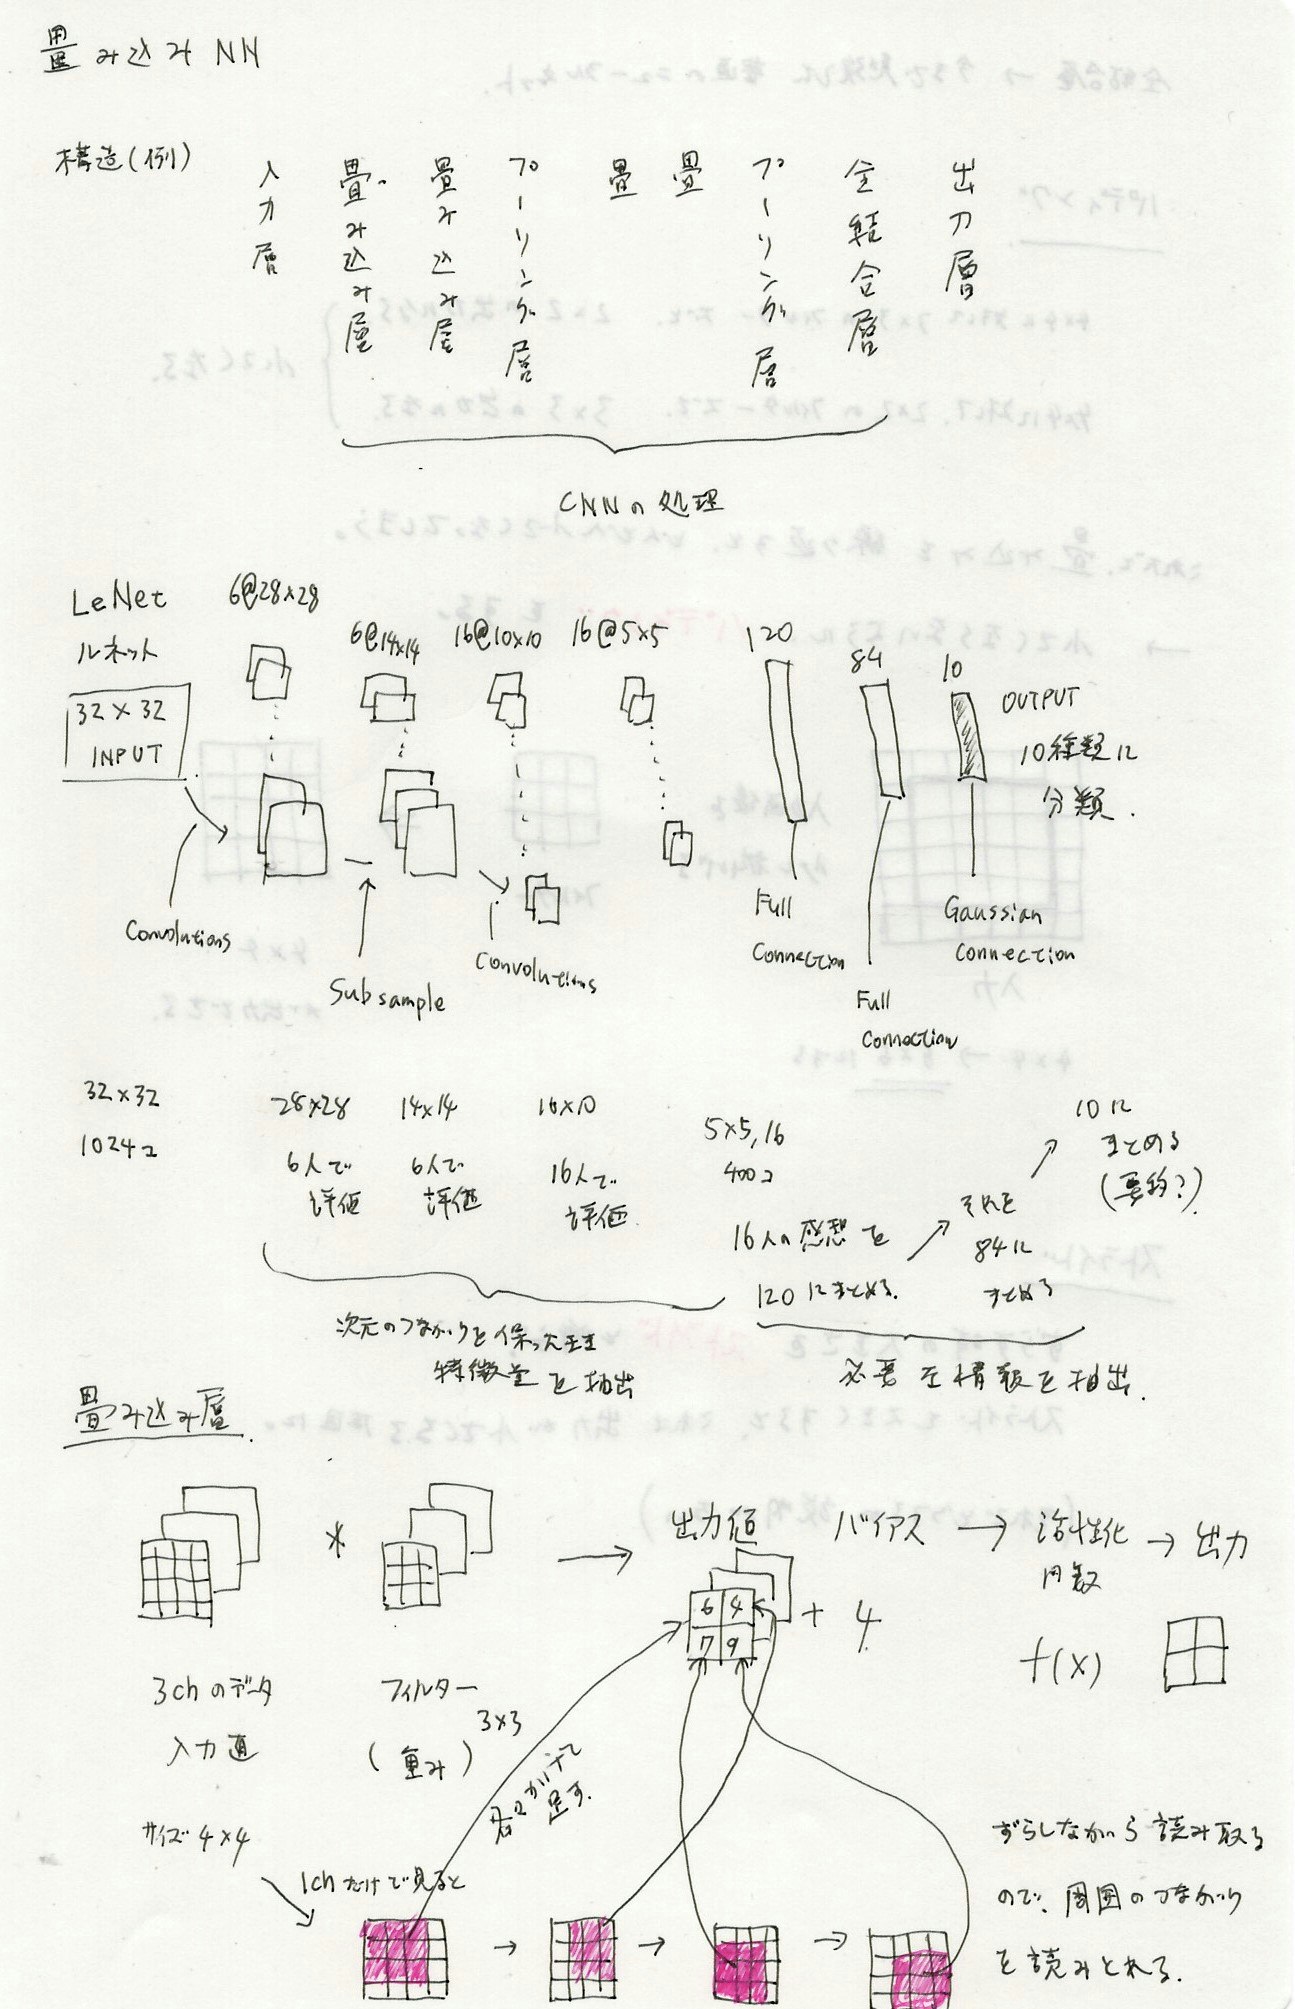 畳み込みNN
構造(例)
入力層
畳み込み層
畳み込み層
プーリング層
畳
畳
プーリング層
全結合層
出力層
CNNの処理
LeNet
ルネット
32×32
INPUT
6@28×28
6@14×14
16@10×10
16@5×5
120
84
10
OUTPUT
10種類に
分類.
Convolutions
Subsample
Convolutions
Full
Connection
Full
Connection
Gaussian
Connection
32×32
1024コ
28×28
6人で
評価
14×14
6人で
評価
10×10
16人で
評価
5×5,16
400コ
16人の感想を
120にまとめる.
それを
84に
まとめる
10に
まとめる
(要約?)
次元のつながりを保ったまま
特徴量を抽出
必要な情報を抽出.
畳み込み層.
* → 出力値 バイアス → 活性化 → 出力
関数
6 4
7 9
+ 4
f(x)
3chのデータ
入力値
サイズ 4×4
フィルター
3×3
(重み)
各々かけて
足す.
1chだけで見ると
ずらしながら読み取る
ので、周囲のつながり
を読みとれる.